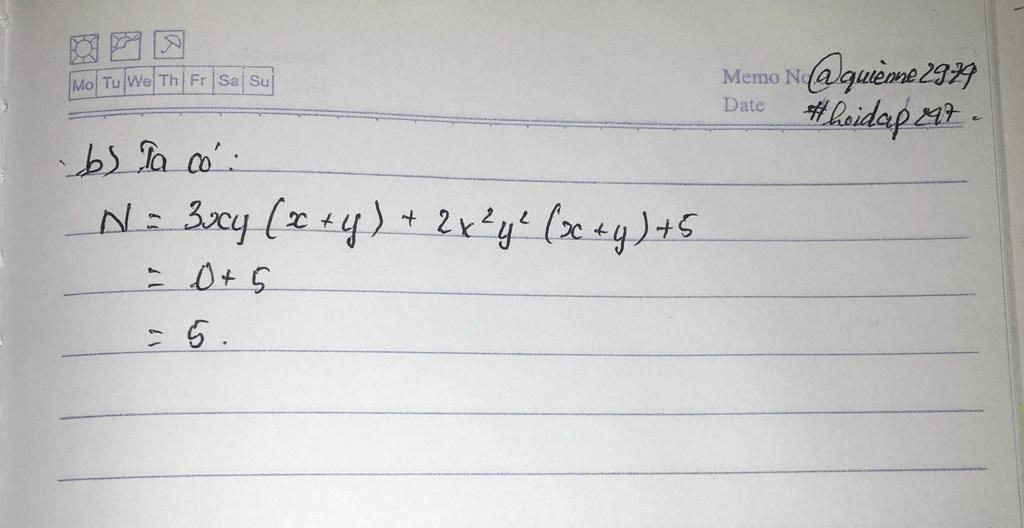 Mo Tu We Th Fr Sa Su
Memo No @quienne2979
Date #hoidap247.
b) Ta có:
N = 3xy (x + y) + 2x²y² (x + y) + 5
= 0 + 5
= 5.